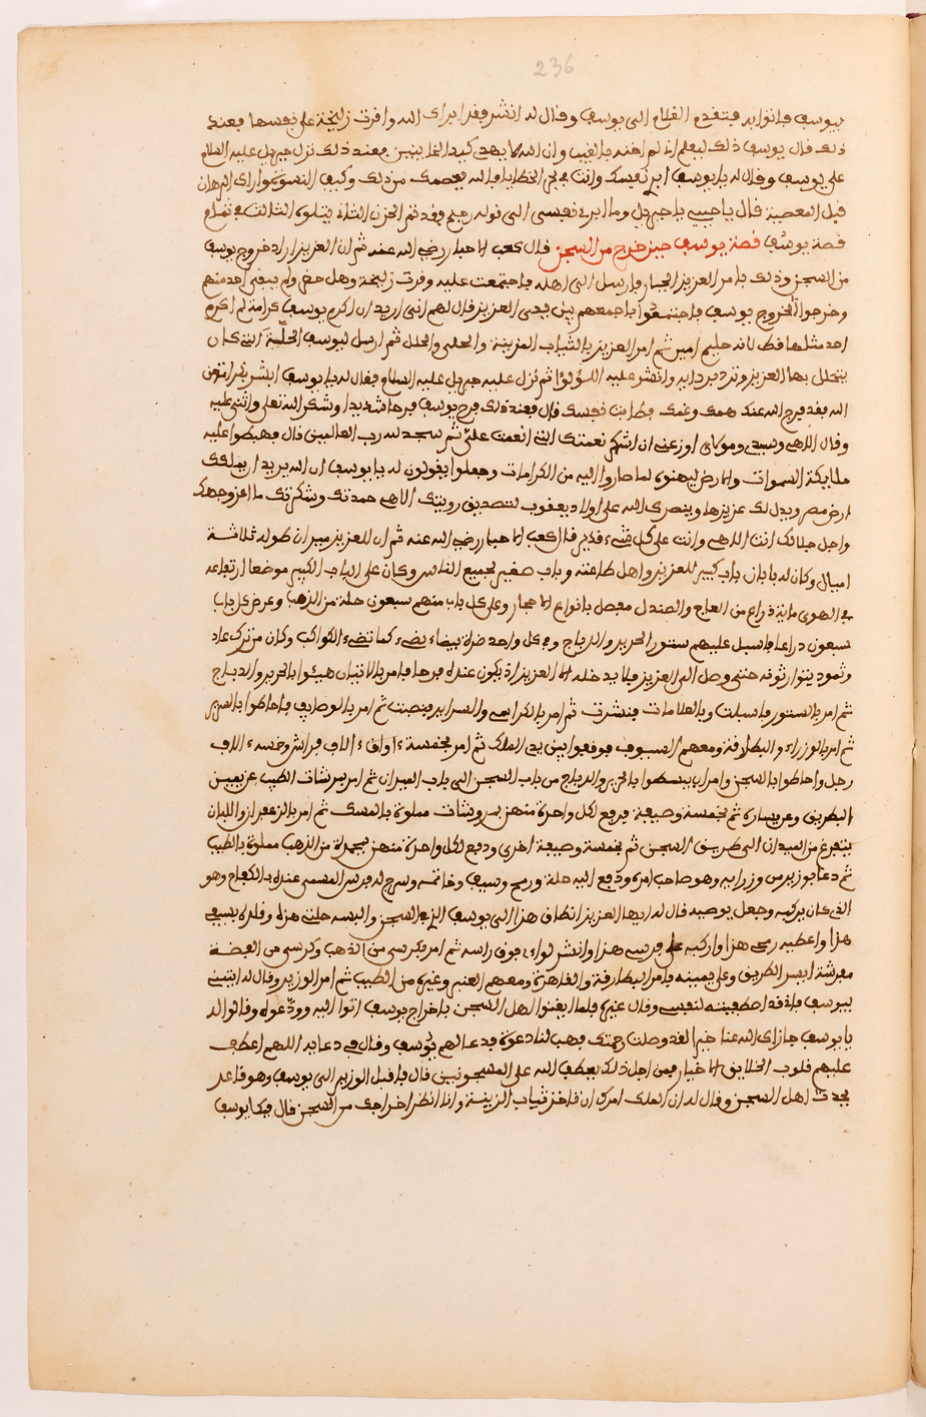 236
بيوسف فاتوا به فتقدم الغلام الى يوسف وقال له ابشر فقد ابراك الله واقرت زليخة على نفسها فعند
ذلك قال يوسف ذلك ليعلم انى لم اخنه بالغيب وان الله لا يهدى كيد الخاينين فعند ذلك نزل جبريل عليه السلام
على يوسف وقال له يا يوسف ابرئ نفسك وانت فى لج الخطايا فالله يعصمك من ذلك وكيف النسوة لولا راى البرهان
قبل المعصية قال يا حبيبى يا جبريل وما ابرئ نفسى الى قوله رحيم وقد تم الجزء الثانى يتلوه الثالث فى تمام
قصة يوسف قصة يوسف حين خرج من السجن قال كعب الاحبار رضى الله عنه ثم ان العزيز اراد خروج يوسف
من السجن وذلك بامر العزيز الجبار فارسل الى اهله فاجتمعت عليه وفرت زليخة وهل حفى ولم يبقى احد منهم
وخرجوا لخروج يوسف فاجتمعوا باجمعهم بين يدى العزيز قال لهم انى اريد ان اكرم يوسف كرامة لم اكرم
احد مثلها قط لانه حليم امين ثم امر العزيز بالثياب المزينة والحلى والحلل ثم ارسل ليوسف الحلة التى كان
يتحلل بها العزيز وتردى بردايه وانتشر عليه اللؤلؤ ثم نزل عليه جبريل عليه السلام فقال له يا يوسف ابشر
الله فقد فرج الله عنك همك وغمك فطابت نفسك قال فعند ذلك فرح يوسف فرحا شديدا وشكر الله تعلى واثنى عليه
وقال الهى وسيدى ومولاى اوزعنى ان اشكر نعمتك التى انعمت على ثم سجد لله رب العالمين قال فهبطوا عليه
ملايكة السموات والارض ليهنوه لما صاروا اليه من الكرامات وجعلوا يقولون له يا يوسف ان الله يريد ان يملكك
ارض مصر ويذل لك عزيزها وينصرك الله على اولاد يعقوب لتصديق رويتك الاهى حمدتك وشكرتك ما اعز وجهك
واجل جلالك انت الهى وانت على كل شىء قدير قال كعب الاحبار رضى الله عنه ثم ان للعزيز ميدان طوله ثلاثة
اميال وكان له بابان باب كبير للعزيز واهل طاعته وباب صغير لجميع الناس وكان على الباب الكبير موضعا ارتفاعه
فى الهوى ماية ذراع من العاج والصندل مفصل بانواع الاحجار وعلى كل باب منهم سبعون حلة من الذهب وعرض كل باب
سبعون ذراعا فاسبل عليهم ستور الحرير والديباج وفى كل واحد ضرة بيضاء تضىء كما تضىء الكواكب وكان من ترك عاد
وثمود يتوارثونه حتى وصل الى العزيز فلا يدخله الا العزيز اذ يكون عنده فرحا فامر بالاتيان هيئوا بالحرير والديباج
ثم امر بالستور فاسبلت وبالعلامات فنشرت ثم امر بالكراسى والسراير فنصبت ثم امر بالوصايف فاحاطوا بالسرير
ثم امر بالوزراء والبطارقة ومعهم السيوف فوقفوا بين يدى الملك ثم امر بخمسة ءالاف ءالاف فراش وخمسة ءالاف
رجل واحاطوا بالسجن وامر ان يبسطوا بالحرير والديباج من باب السجن الى باب الميدان ثم امر برشات الطيب عن يمين
الطريق وعن يساره ثم بخمسة وصيفة فدفع لكل واحدة منهن مروشات مملوة بالمسك ثم امر بالزعفران واللبان
يتفرغ من الميدان الى طريق السجن ثم بخمسة وصيفة اخرى ودفع لكل واحدة منهن مجمرة من الذهب مملوة بالطيب
ثم دعا بوزير من وزرايه وهو صاحب امره ودفع اليه حلة ورمح وسيف وخاتمه وسرج له فرس المسمى عنده بالكفاح وهو
الذى كان يركبه وجعل يوصيه قال له ايها العزيز انطلق هذا الى يوسف الذى فى السجن والبسه حلتى هذه وقلده بسيفى
هذا واعطيه رمحى هذا واركبه على فرسى هذا وانشر لواى فوق راسه ثم امر بكرسى من الذهب وكرسى من الفضة
مفرشة ايسر الطريق وعلى يمينه فامر البطارقة والقاهرة ومعهم العنبر وغيره من الطيب ثم امر الوزير وقال له ايتينى
بيوسف فانه قد اصطفيته لنفسى وقال غيره فلما ايقنوا اهل السجن باخراج يوسف اتوا اليه وودعوه وقالوا له
يا يوسف جازاك الله عنا خيرا لقد وصلت رحمتك فهب لنا دعوة فدعا لهم يوسف وقال فى دعايه اللهم اعطف
عليهم قلوب الخلايق الاخيار فمن اجل ذلك يعطف الله على المسجونين قال فاقبل الوزير الى يوسف وهو قاعد
يحدث اهل السجن وقال له ان الملك امرك ان تاخذ ثياب الزينة وانا انظر اخراجك من السجن قال فبكا يوسف